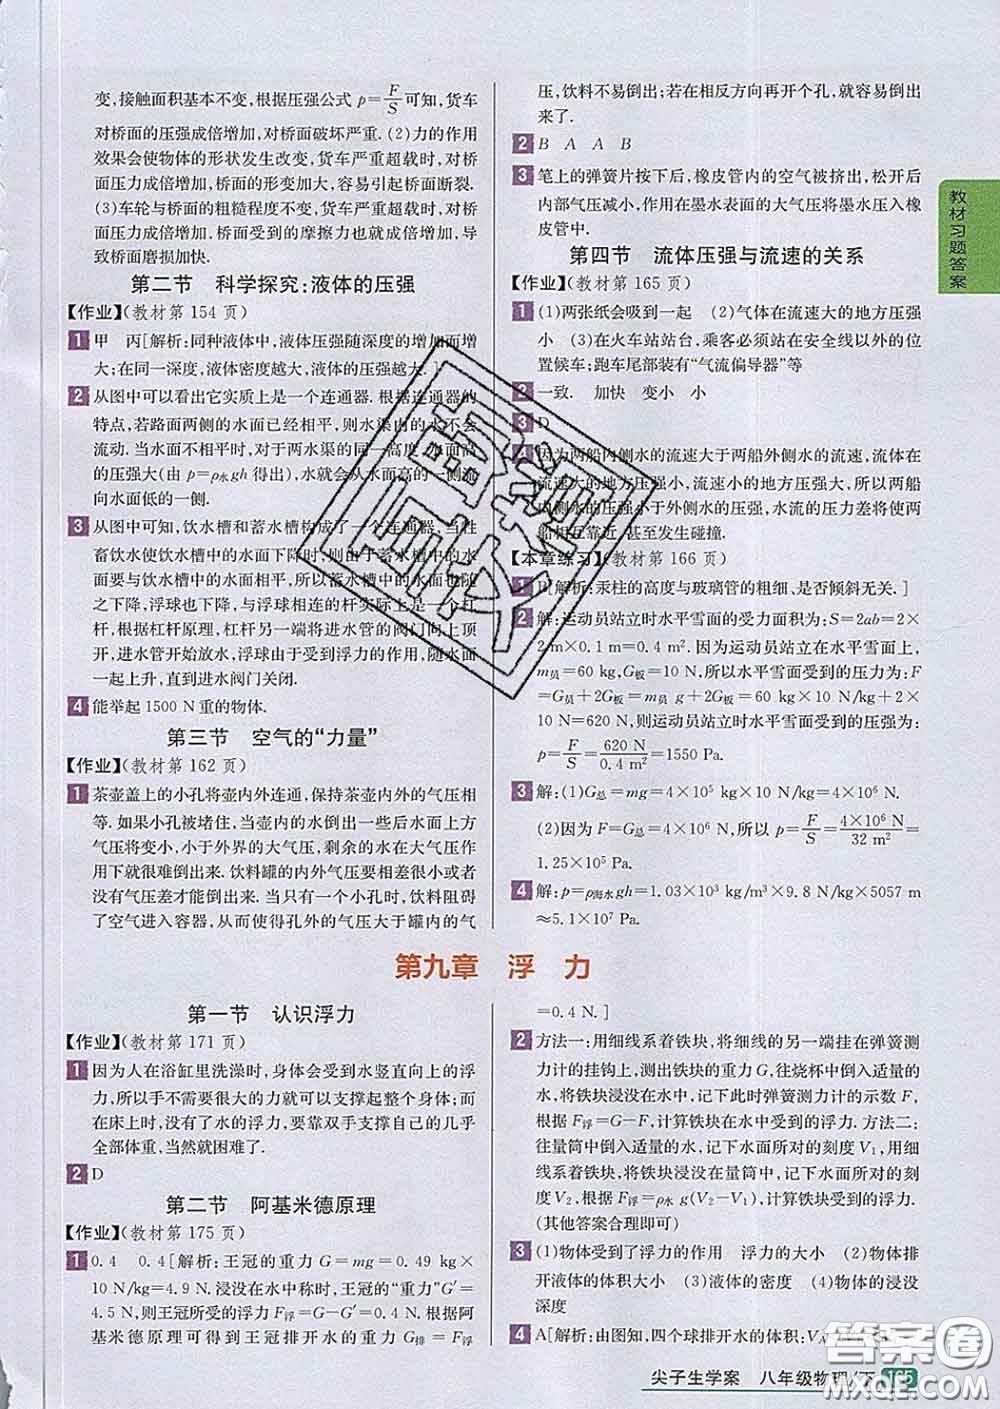 变,接触面积基本不变,根据压强公式 p=F/S 可知,货车
对桥面的压强成倍增加,对桥面破坏严重.(2)力的作用
效果会使物体的形状发生改变,货车严重超载时,对桥
面压力成倍增加,桥面的形变加大,容易引起桥面断裂.
(3)车轮与桥面的粗糙程度不变,货车严重超载时,对
桥面压力成倍增加,桥面受到的摩擦力也成倍增加,导
致桥面磨损加快.
第二节 科学探究:液体的压强
【作业】(教材第 154 页)
1 甲 丙[解析:同种液体中,液体压强随深度的增加而增
大;在同一深度,液体密度越大,液体的压强越大.]
2 从图中可以看出它实质上是一个连通器.根据连通器的
特点,若路面两侧的水面已经相平,则水渠内的水不会
流动.当水面不相平时,对于两水渠的同一高度,水面高
的压强大(由 p=ρ水gh 得出),水就会从水面高的一侧流
向水面低的一侧.
3 从图中可知,饮水槽和蓄水槽构成了一个连通器,当牲
畜饮水使饮水槽中的水面下降时,则由于蓄水槽中的水
面要与饮水槽中的水面相平,所以蓄水槽中的水面也随
之下降,浮球也下降,与浮球相连的杆实际上是一个杠
杆,根据杠杆原理,杠杆另一端将进水管的阀门向上顶
开,进水管开始放水,浮球由于受到浮力的作用,随水面
一起上升,直到进水阀门关闭.
4 能举起 1500 N 重的物体.
第三节 空气的“力量”
【作业】(教材第 162 页)
1 茶壶盖上的小孔将壶内外连通,保持茶壶内外的气压相
等.如果小孔被堵住,当壶内的水倒出一些后水面上方
气压将变小,小于外界的大气压,剩余的水在大气压作
用下就很难倒出来.饮料罐的内外气压要相差很小或者
没有气压差才能倒出来.当只有一个小孔时,饮料阻碍
了空气进入容器,从而使得孔外的气压大于罐内的气
压,饮料不易倒出;若在相反方向再开个孔,就能倒出
来了.
2 B A A B
3 笔上的弹簧片按下后,橡皮管内的空气被挤出,松开后
内部气压减小,作用在墨水表面的大气压将墨水压入橡
皮管中.
第四节 流体压强与流速的关系
【作业】(教材第 165 页)
1 (1)两张纸会吸到一起 (2)气体在流速大的地方压强
小 (3)在火车站站台,乘客必须站在安全线以外的位
置候车;跑车尾部装有“气流偏导器”等
2 一致. 加快 变小 小
3 D
4 因为两船内侧水的流速大于两船外侧水的流速,流体在
流速大的地方压强小,流速小的地方压强大,所以两船
内侧水的压强小于外侧水的压强,水流的压力差将使两
船相互靠近,甚至发生碰撞.
【本章练习】(教材第 166 页)
1 B[解析:汞柱的高度与玻璃管的粗细、是否倾斜无关.]
2 解:运动员站立时水平雪面的受力面积为:S=2ab=2×
2 m×0.1 m=0.4 m². 运动员站立在水平雪面上时,
m员=60 kg,G板=10 N,所以水平雪面受到的压力为:F
=G员+2G板=m员 g+2G板=60 kg×10 N/kg+2×
10 N=620 N,则运动员站立时水平雪面受到的压强为:
p=F/S=620 N/0.4 m²=1550 Pa.
3 解:(1)G总=mg=4×10⁵ kg×10 N/kg=4×10⁶ N.
(2)因为 F=G总=4×10⁶ N,所以 p=F/S=4×10⁶ N/32 m²=
1.25×10⁵ Pa.
4 解:p=ρ海水gh=1.03×10³ kg/m³×9.8 N/kg×5057 m
≈5.1×10⁷ Pa.
第九章 浮 力
第一节 认识浮力
【作业】(教材第 171 页)
1 因为人在浴缸里洗澡时,身体会受到水竖直向上的浮
力,所以手不需要很大的力就可以支撑起整个身体;而
在床上时,没有了水的浮力,要靠双手支撑自己的几乎
全部体重,当然就困难了.
2 D
第二节 阿基米德原理
【作业】(教材第 175 页)
1 0.4 0.4[解析:王冠的重力 G=mg=0.49 kg×
10 N/kg=4.9 N.浸没在水中称时,王冠的“重力”G′=
4.5 N,则王冠所受的浮力 F浮=G-G′=0.4 N.根据阿
基米德原理可得到王冠排开水的重力 G排=F浮
=0.4 N.]
2 方法一:用细线系着铁块,将细线的另一端挂在弹簧测
力计的挂钩上,测出铁块的重力 G,往烧杯中倒入适量的
水,将铁块浸没在水中,记下此时弹簧测力计的示数 F,
根据 F浮=G-F,计算铁块在水中受到的浮力. 方法二:
往量筒中倒入适量的水,记下水面所对的刻度 V₁,用细
线系着铁块,将铁块浸没在量筒中,记下水面所对的刻
度 V₂,根据 F浮=ρ水 g(V₂-V₁),计算铁块受到的浮力.
(其他答案合理即可)
3 (1)物体受到了浮力的作用 浮力的大小 (2)物体排
开液体的体积大小 (3)液体的密度 (4)物体的浸没
深度
4 A[解析:由图知,四个球排开水的体积:
尖子生学案 八年级物理/下 165
教材习题答案
答案圈
MXQE.COM